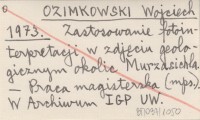 OZIMKOWSKI Wojciech
1973. Zastosowanie fotoin-
terpretacji w zdjęciu geolo-
gicznym okolic Murzasichla.
— Praca magisterska (mps.)
W Archiwum IGP UW.